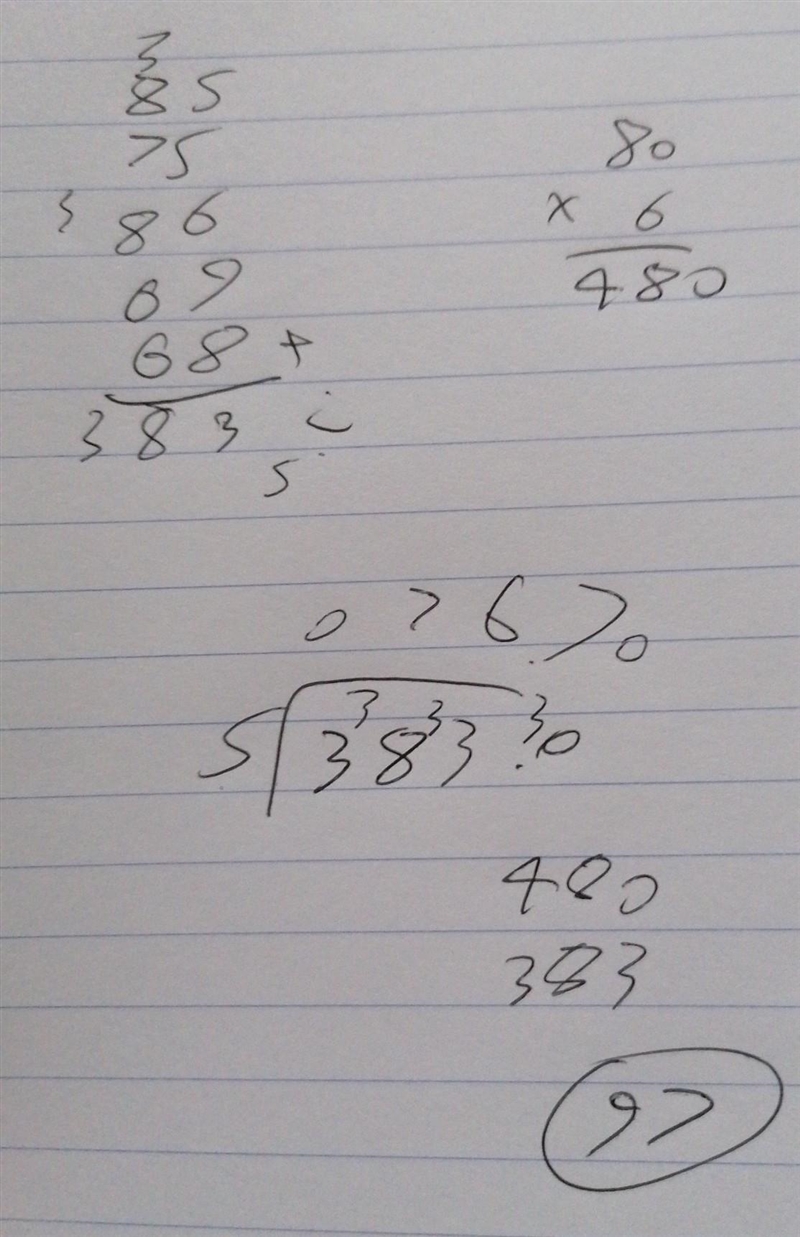 3
85
75
3 86
69
68 +
383 ÷
5
80
x 6
480
0 7 6.70
3 3 3
5 383.0
480
383
97